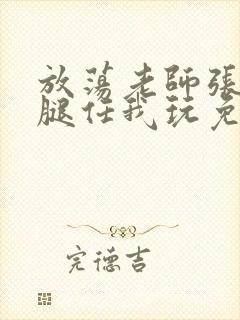 放蕩老師張
腿任我玩免
完德吉